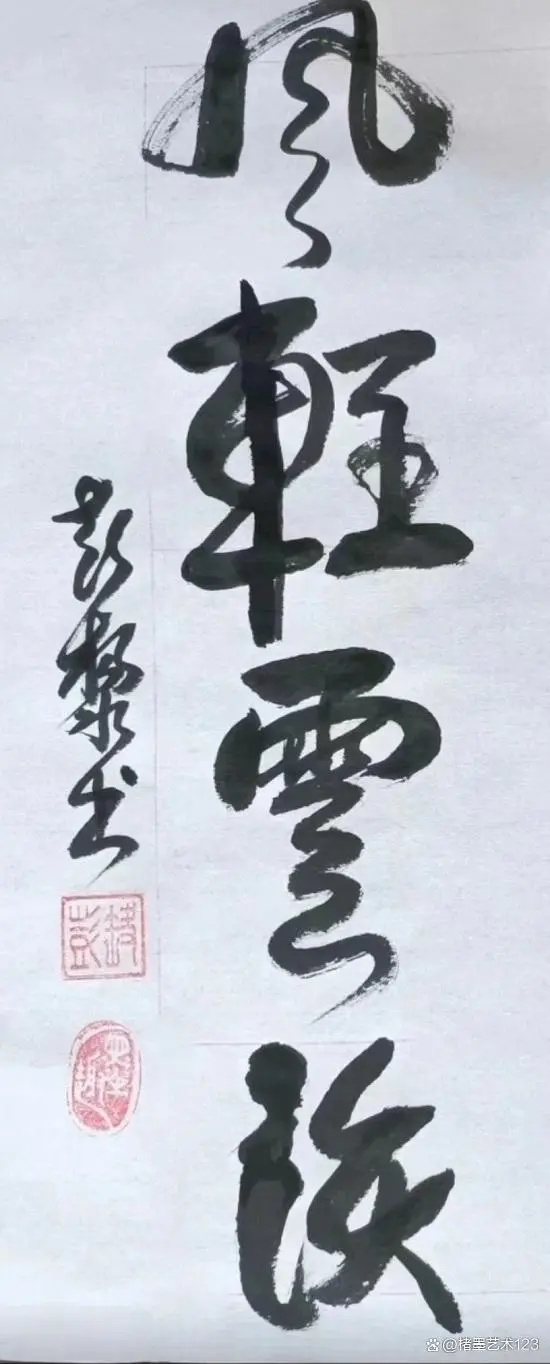 風輕雲淡
彭 书
@楮墨艺术123